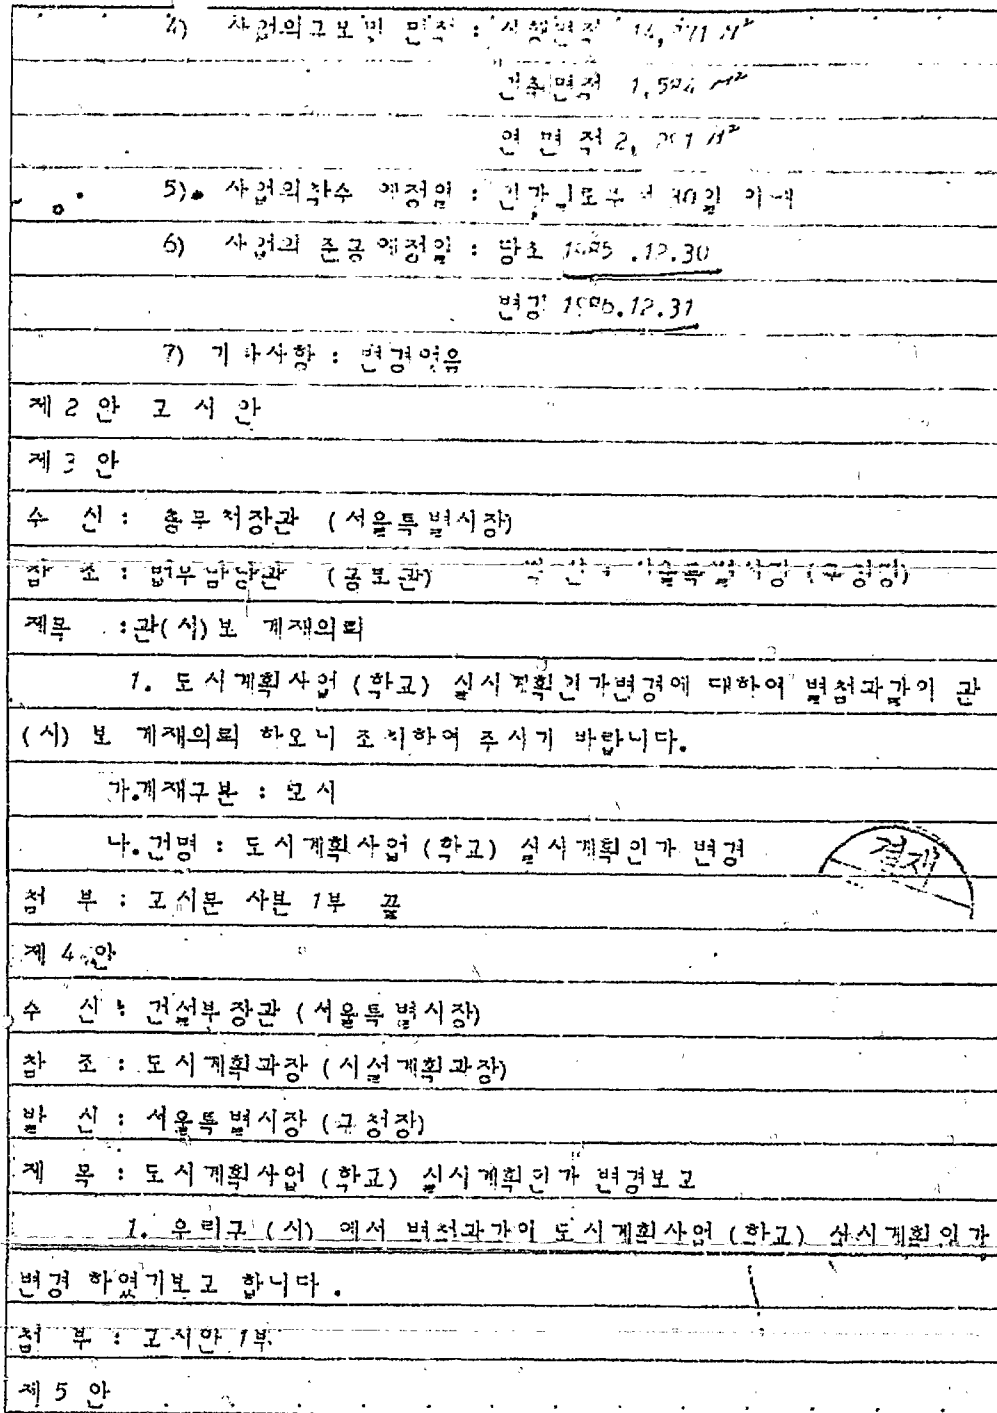 4) 사업의규모및 면적 : 시행면적 M²
건축면적 M²
연 면 적 2, M²
5). 사업의착수 예정일 : 인가일로부터 30일 이내
6) 사업의 준공예정일 : 당초 1985 .12.30
변경 1986.12.31
7) 기타사항 : 변경없음
제 2 안 고 시 안
제 3 안
수 신 : 총무처장관 (서울특별시장)
참 조 : 법무담당관 (공보관) 발 신 : 서울특별시장 (구청장)
제목 : 관(시)보 게재의뢰
1. 도시계획사업 (학교) 실시계획인가변경에 대하여 별첨과같이 관
(시) 보 게재의뢰 하오니 조치하여 주시기 바랍니다.
가.게재구분 : 고시
나.건명 : 도시계획사업 (학교) 실시계획인가 변경
결재
첨 부 : 고시문 사본 1부 끝
제 4 안
수 신 : 건설부장관 (서울특별시장)
참 조 : 도시계획과장 (시설계획과장)
발 신 : 서울특별시장 (구청장)
제 목 : 도시계획사업 (학교) 실시계획인가 변경보고
1. 우리구 (시) 에서 별첨과같이 도시계획사업 (학교) 실시계획인가
변경 하였기보고 합니다.
첨 부 : 고시안 1부.
제 5 안